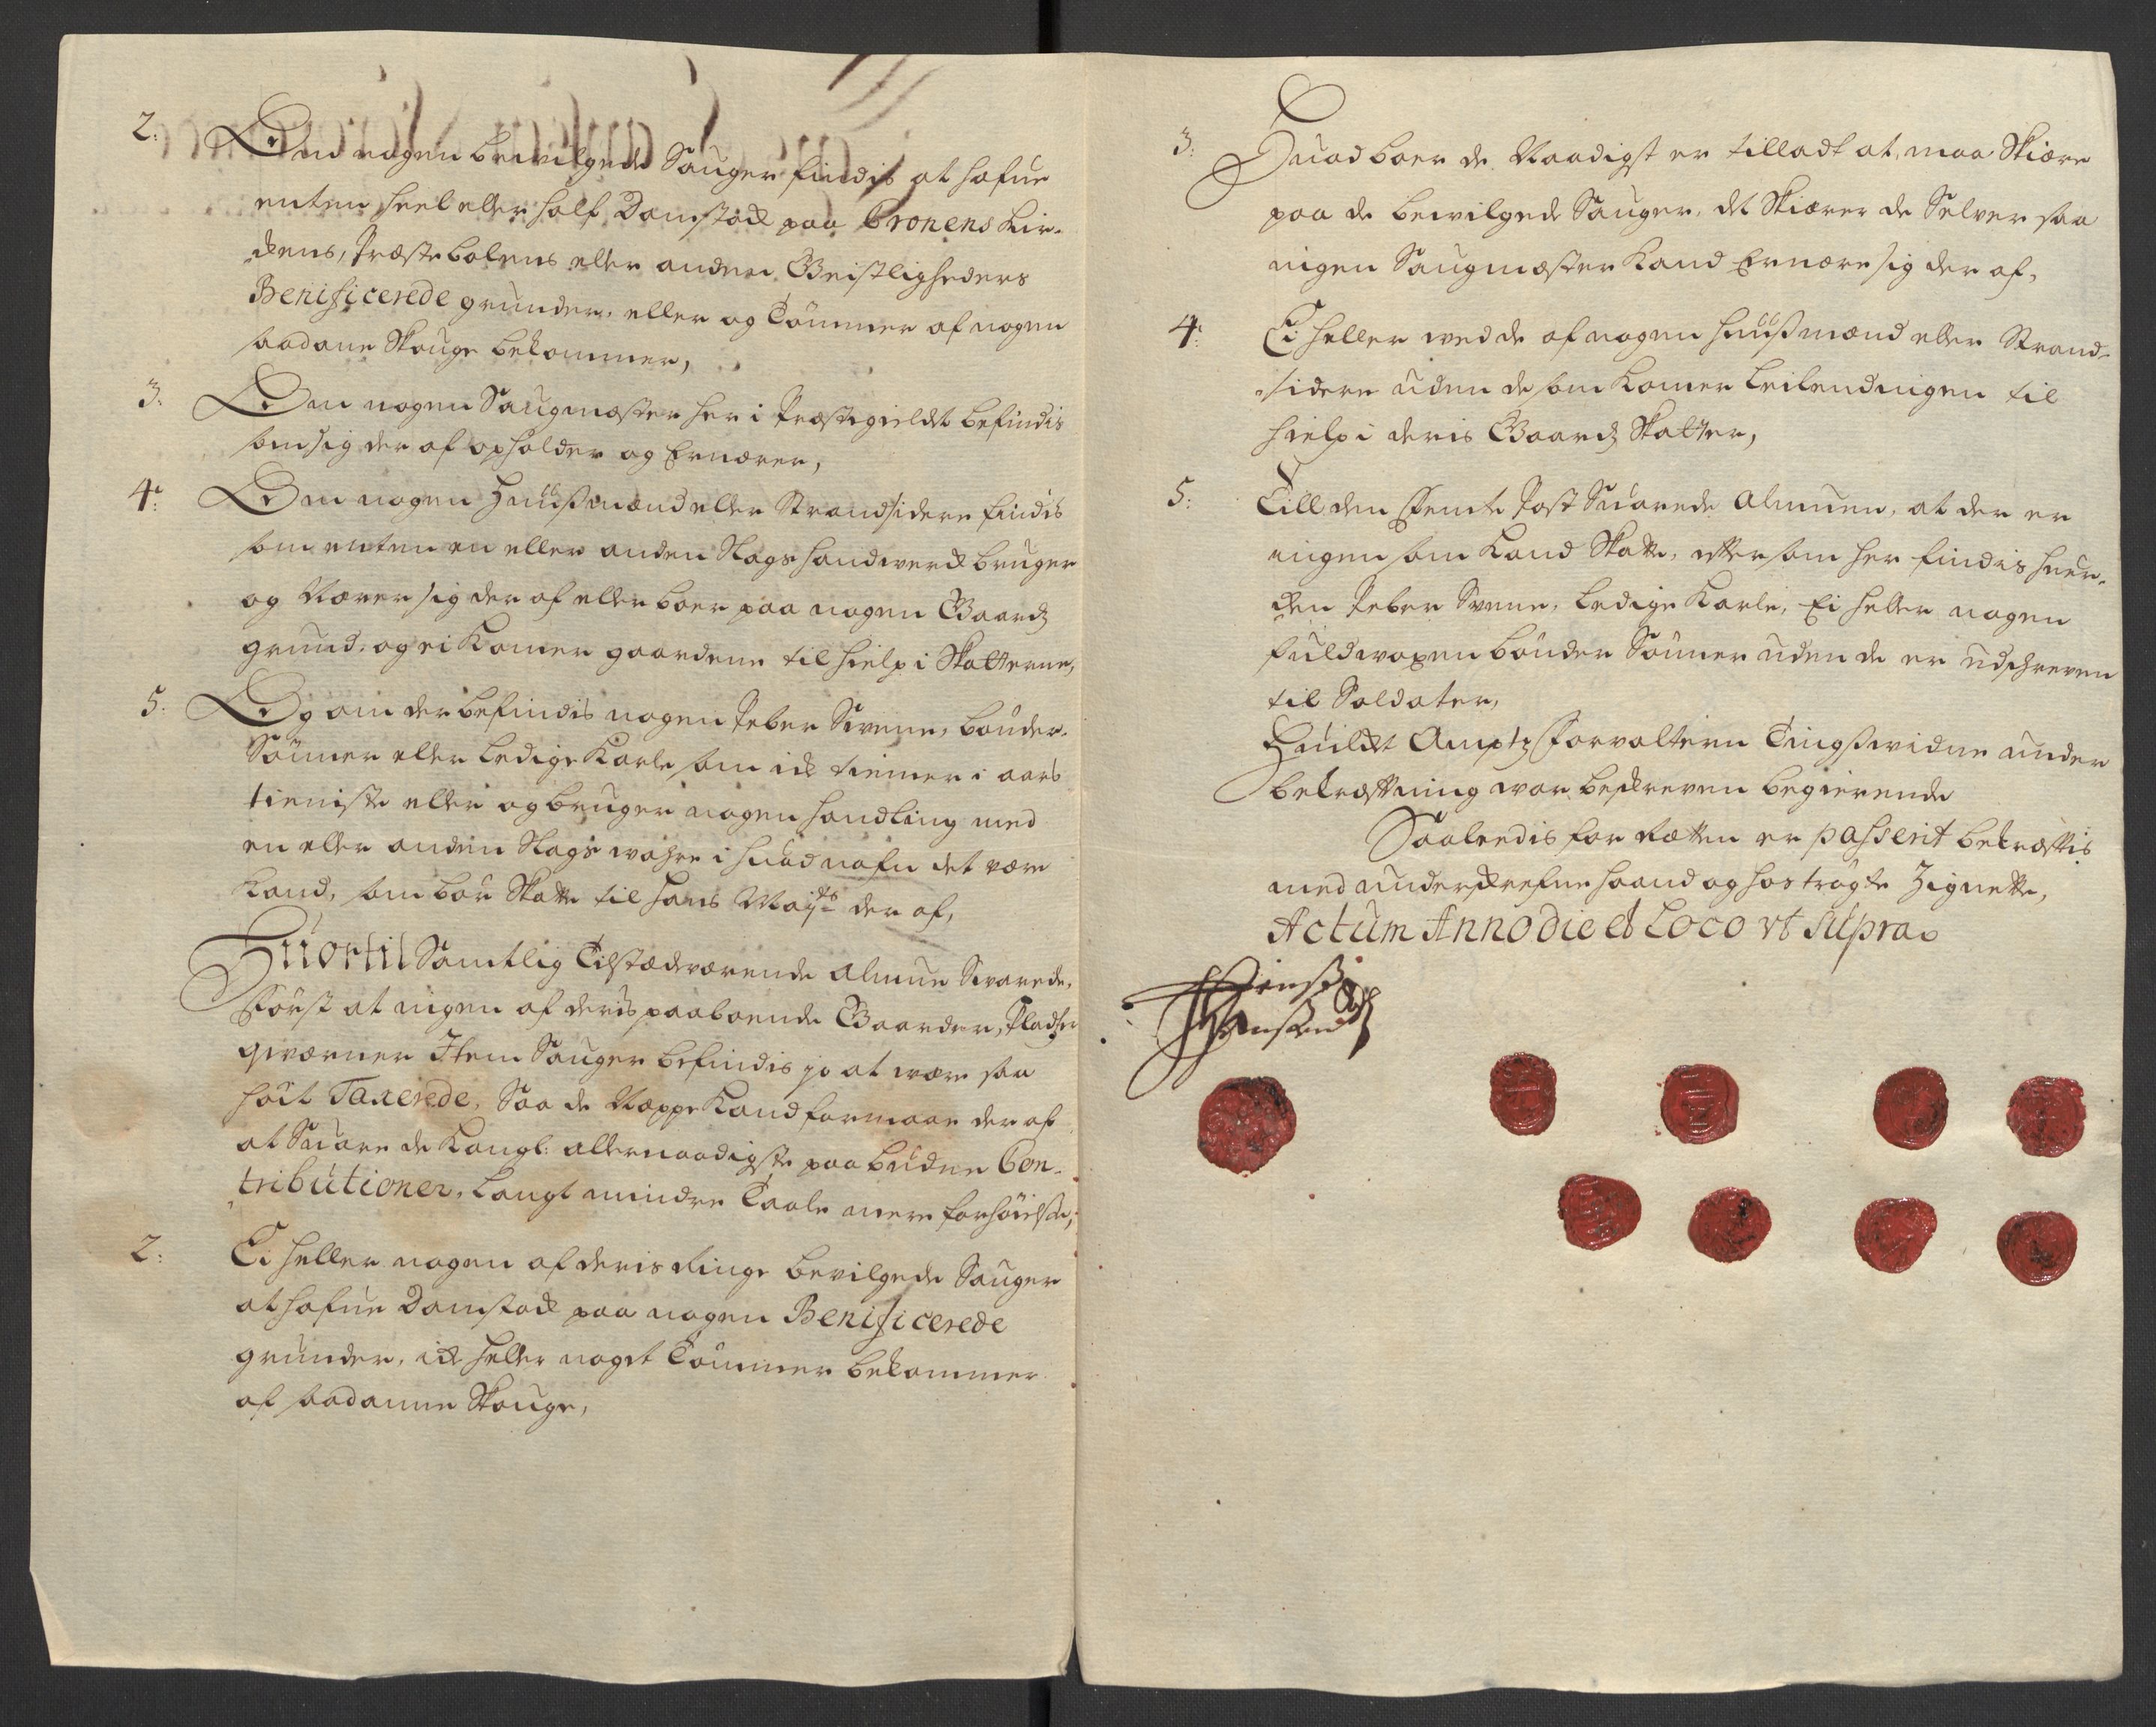 2: Om nogen bewilgede Sauger findis at hafue
enten heel eller half Damstock paa Cronens Kir-
ckens, Præstebolens eller anden Geistligheders
Benificerede grunder, eller og Tømmer af nogen
saadane Skouge bekommer,
3: Om nogen Saugmæster her i Præstegieldet befindis
som sig der af opholder og Ernærer,
4: Om nogen Huußmænd eller Strandsidere findis
som enten en eller anden Slags handwerck bruger
og Nærer sig der af eller boer paa nogen Gaards
grund, og ei Komer gaardene til hielp i Skatterne,
5: Og om der befindis nogen Peber Svenne, bønder-
Sønner eller Ledige Karle som ick tiener i aars
tieniste eller og bruger nogen handling med
en eller anden Slags wahre i huad nafn det være
Kand, som bør Skatte til Hans Mayts der af,
Huortil Samtlig Tilstædeværende Almue Swarede,
Først at ingen af deris paaboende Gaarder, Pladser
qværner Item Sauger befindis jo at være saa
høit Taxerede, Saa de Neppe Kand formaae der af
at Suare de Kongl: allernaadigste paabudne Con-
tributioner, Langt mindre Taale mere forhøielse,
2: Ei heller nogen af deris ringe bevilgede Sauger
at hafue Damstock paa nogen Benificerede
grunder, ick heller noget Tømmer bekommer
af saadanne Skouge,
3: Huad boer de Naadigst er tilladt at maa Skiære
paa de bewilgede Sauger, det Skiærer de Selver saa
ingen Saugmæster Kand Ernære sig der af,
4: Ei heller wed de af nogen Huußmænd eller Strand-
sidere uden de som Komer Leilendingen til
hielp i deris Gaards Skatter,
5: Till den Femte Post Suarede Almuen, at der er
ingen som Kand Skatte, efftersom her findis huer-
cken Peber Svenne, Ledige Karle, Ei heller nogen
fuldwoxen bønder Sønner uden de er udschreven
til Soldater,
Huilcket Ampts Forvalteren Tingswidne under
bekræfftning war beskreven begierende
Saaledis for Retten er passerit bekræfftis
med underskrefne haand og hostrøgte Zignetter,
Actum Anno die et Loco ut supra